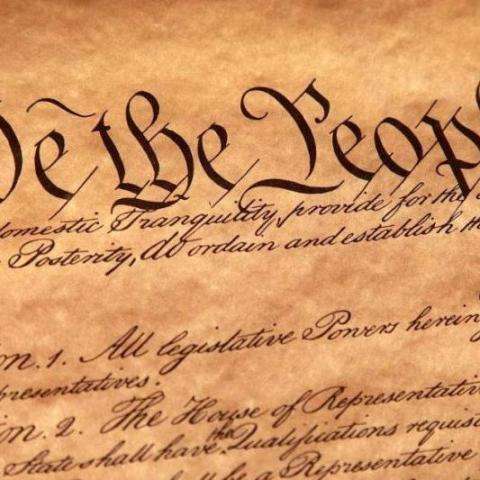 We the Peop
domestic Tranquility, provide for the
Posterity, do ordain and establish th
on. 1. All legislative Powers herein
presentatives.
on. 2. The House of Representativ
State shall have the Qualifications requis
shall be a Representative